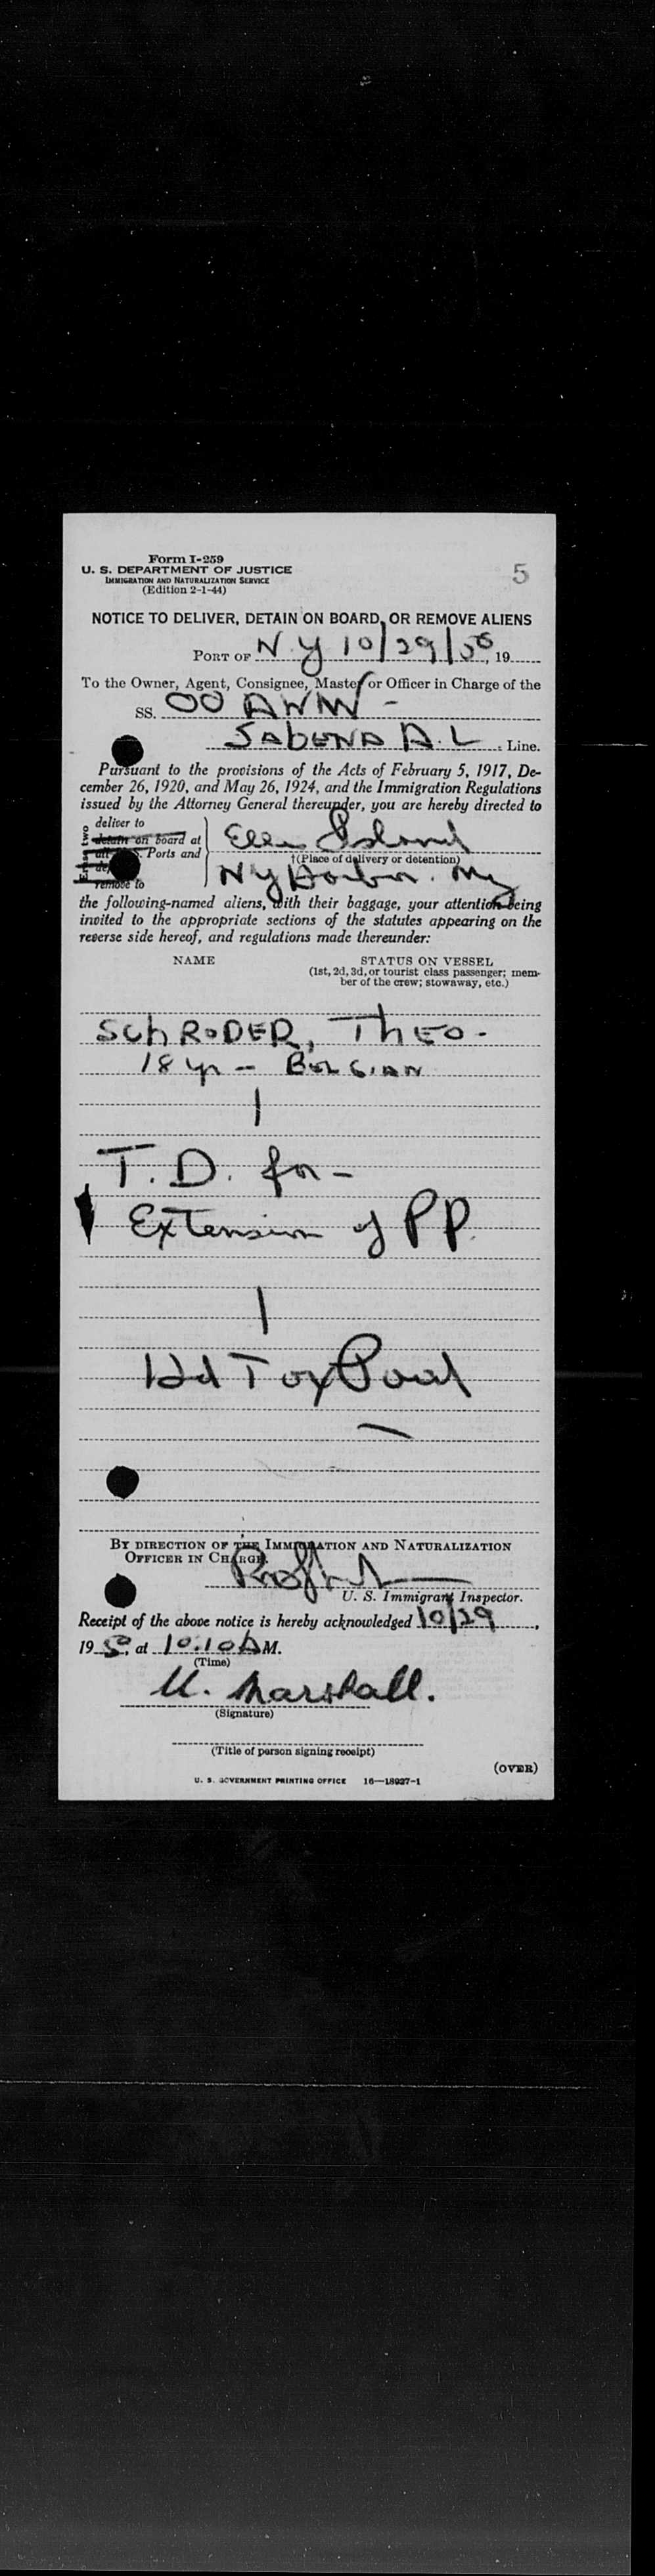 Form I-259
U. S. DEPARTMENT OF JUSTICE
IMMIGRATION AND NATURALIZATION SERVICE
(Edition 2-1-44)
5
NOTICE TO DELIVER, DETAIN ON BOARD, OR REMOVE ALIENS
PORT OF N.Y 10/29/50, 19
To the Owner, Agent, Consignee, Master or Officer in Charge of the
SS. OO AWM -
SABENA A.L. Line.
Pursuant to the provisions of the Acts of February 5, 1917, De-
cember 26, 1920, and May 26, 1924, and the Immigration Regulations
issued by the Attorney General thereunder, you are hereby directed to
deliver to
detain on board at
Ports and
remove to
two
Ellis Island
†(Place of delivery or detention)
NY Harbor. NY
the following-named aliens, with their baggage, your attention being
invited to the appropriate sections of the statutes appearing on the
reverse side hereof, and regulations made thereunder:
NAME
STATUS ON VESSEL
(1st, 2d, 3d, or tourist class passenger; mem-
ber of the crew; stowaway, etc.)
SCHRODER, THEO -
18 yr - BELGIAN
T.D. for -
Extension of PP.
Hd Tax Paid
BY DIRECTION OF THE IMMIGRATION AND NATURALIZATION
OFFICER IN CHARGE.
U. S. Immigrant Inspector.
Receipt of the above notice is hereby acknowledged 10/29,
1950, at 10:10 A M.
(Time)
M. Marshall.
(Signature)
(Title of person signing receipt)
(OVER)
U. S. GOVERNMENT PRINTING OFFICE 16—18927-1